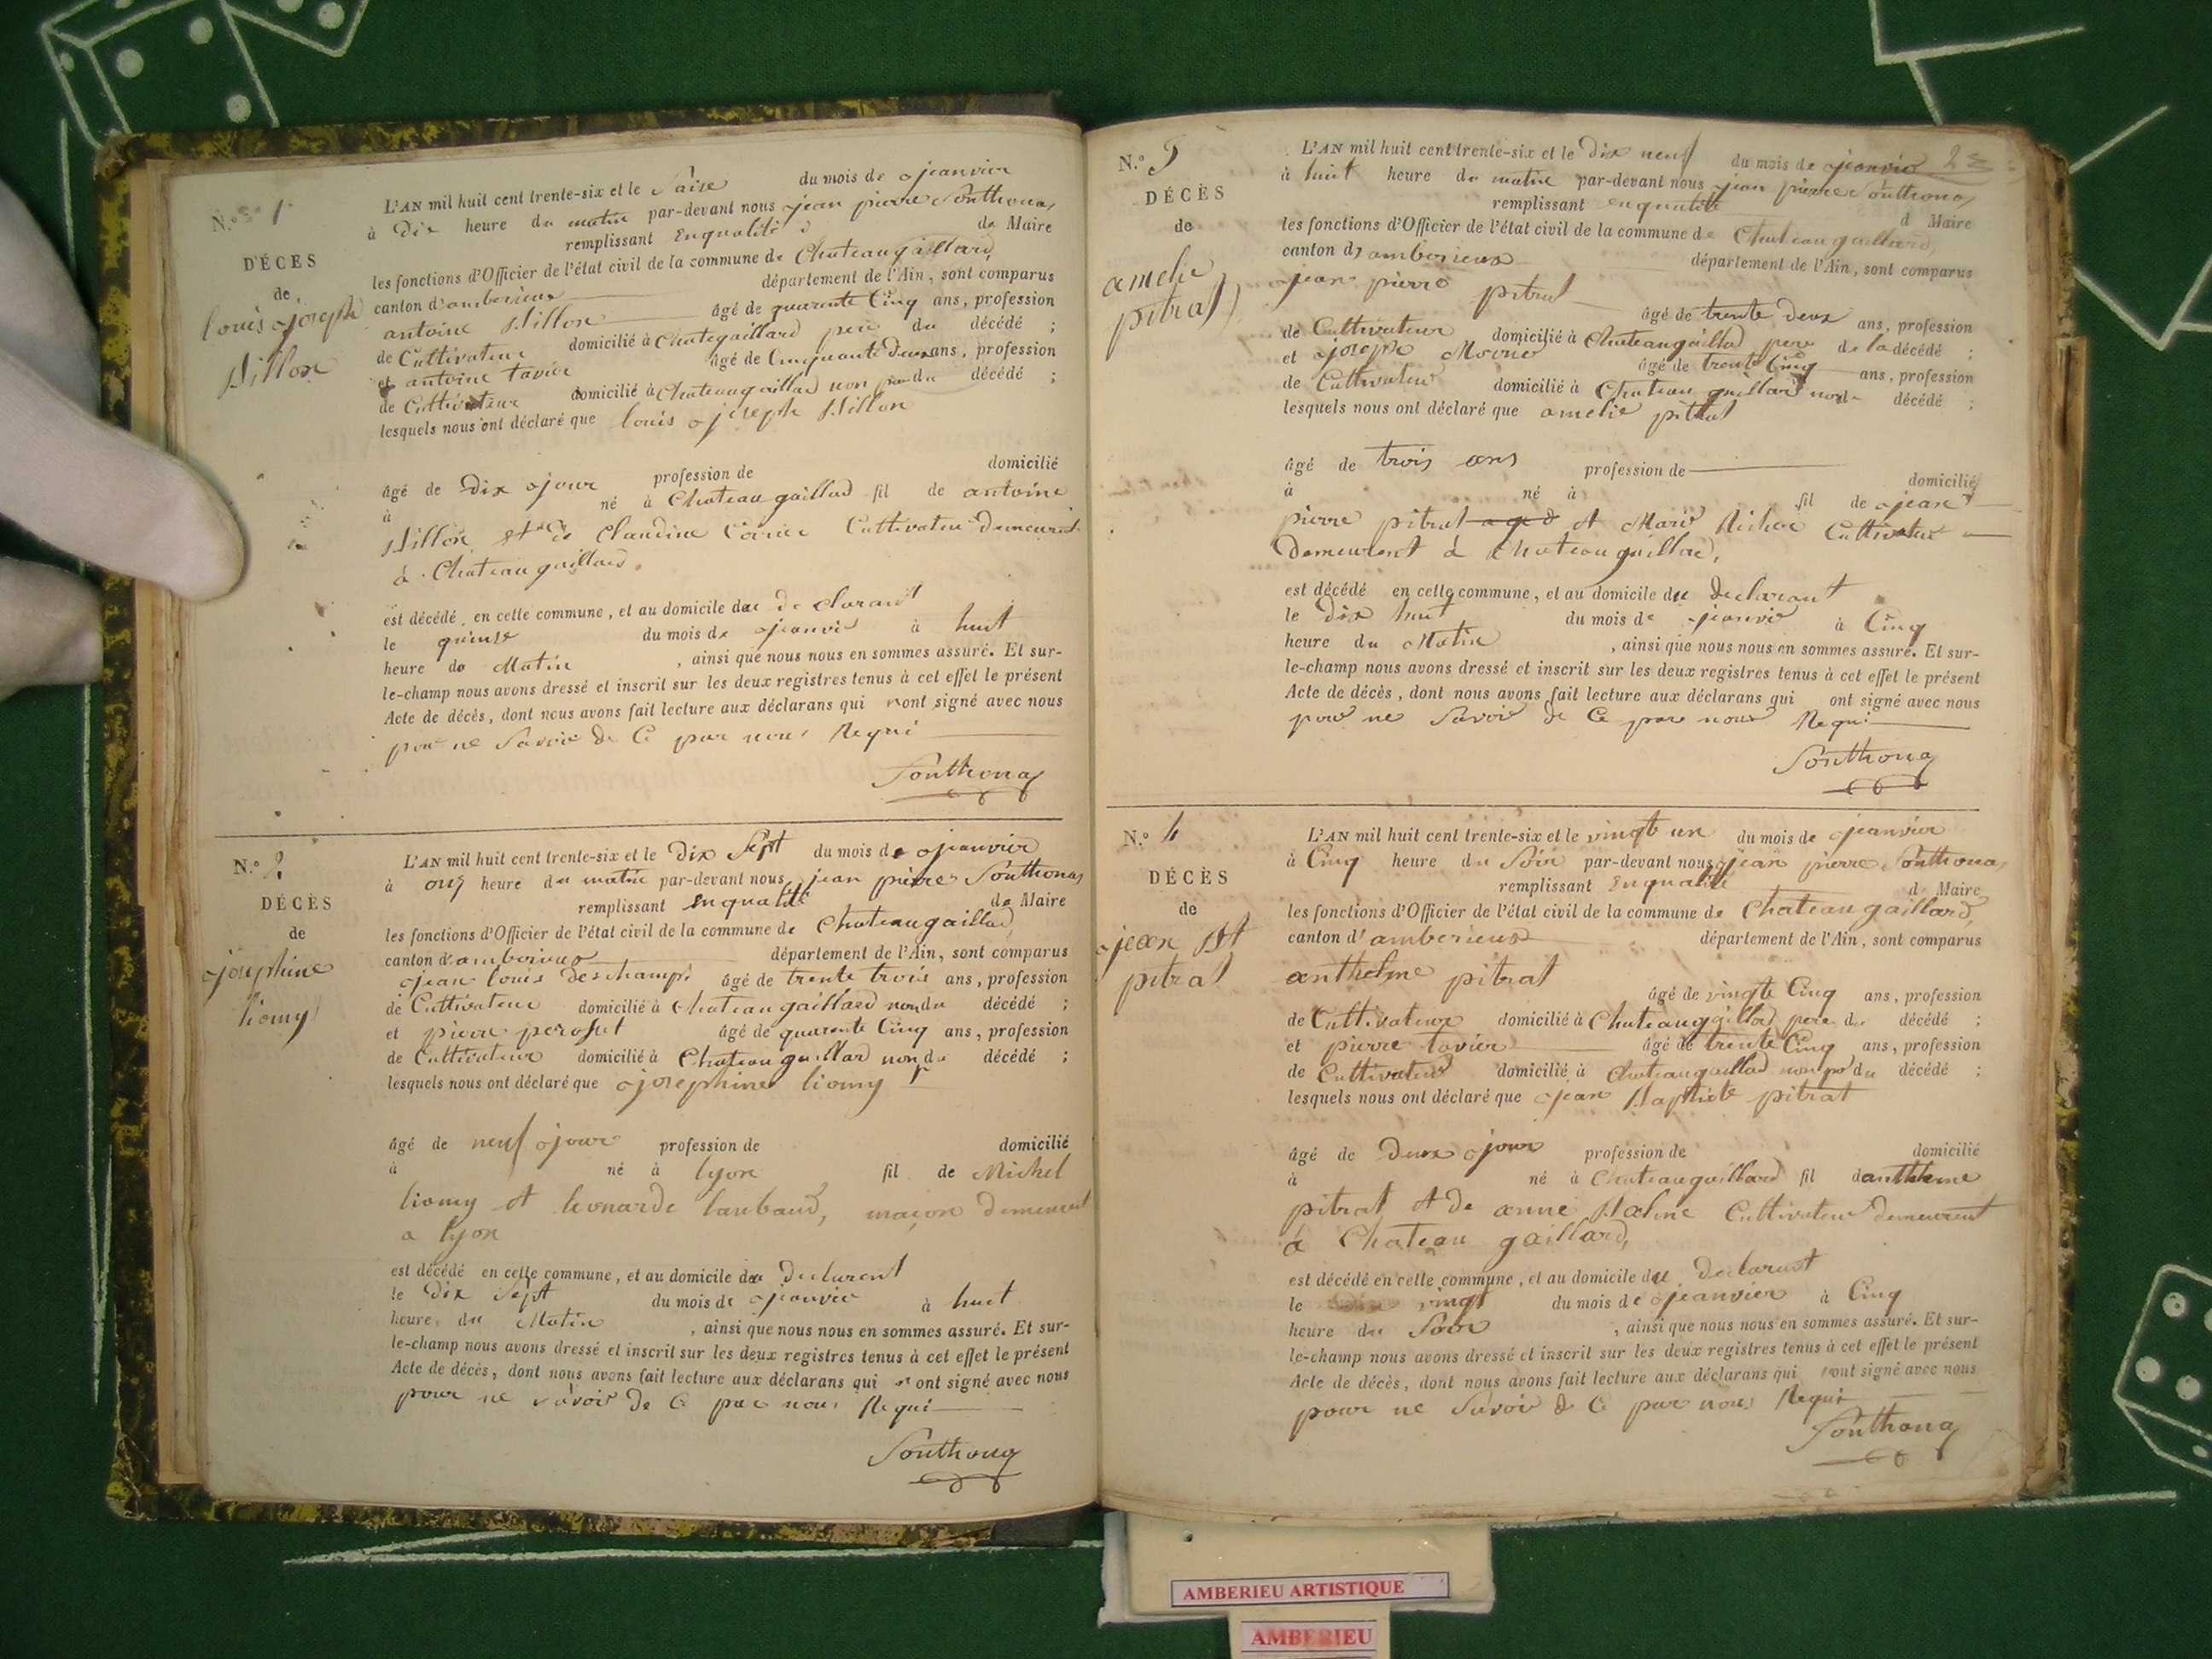 N.º 1
DÉCES
de
louis joseph
Billon
L'AN mil huit cent trente-six et le Saise du mois de janvier
à Dix heure du matin par-devant nous jean pierre Sonthonax
remplissant Enqualité de Maire
les fonctions d'Officier de l'état civil de la commune de Chateaugaillard,
canton d'amberieux département de l'Ain, sont comparus
antoine Billon âgé de quarente Cinq ans, profession
de Cultivateur domicilié à Chateaugaillard pere du décédé ;
et antoine tavier âgé de Cinquante Deux ans, profession
de Cultivateur domicilié à Chateaugaillard non du décédé ;
lesquels nous ont déclaré que louis joseph Billon
âgé de Dix jour profession de domicilié
à né à Chateaugaillard fil de antoine
Billon et de Claudine Cultivateur Demeurent
à Chateaugaillard.
est décédé en cette commune, et au domicile du De clarant
le quinse du mois de janvié à huit
heure du Matin , ainsi que nous nous en sommes assuré. Et sur-
le-champ nous avons dressé et inscrit sur les deux registres tenus à cet effet le présent
Acte de décès, dont nous avons fait lecture aux déclarans qui n'ont signé avec nous
pour ne Savoir De Ce par nous Requi
Sonthonax
N.º 2
DÉCÈS
de
josephine
liomy
L'AN mil huit cent trente-six et le Dix Sept du mois de janvier
à onz heure du matin par-devant nous jean pierre Sonthonax
remplissant Enqualité de Maire
les fonctions d'Officier de l'état civil de la commune de Chateaugaillard,
canton d'amberieux département de l'Ain, sont comparus
jean louis deschamps âgé de trente trois ans, profession
de Cultivateur domicilié à Chateaugaillard non du décédé ;
et pierre perosut âgé de quarente Cinq ans, profession
de Cultivateur domicilié à Chateaugaillard non du décédé ;
lesquels nous ont déclaré que josephine liomy
âgé de neuf jour profession de domicilié
à né à lyon fil de Michel
liomy et leonarde laubaud, maçon demeurent
a lyon
est décédé en cette commune, et au domicile du Declarent
le Dix Sept du mois de janvié à huit
heure du Matin , ainsi que nous nous en sommes assuré. Et sur-
le-champ nous avons dressé et inscrit sur les deux registres tenus à cet effet le présent
Acte de décès, dont nous avons fait lecture aux déclarans qui n'ont signé avec nous
pour ne savoir De Ce par nous Requi
Sonthonax
N.º 3
DÉCÈS
de
amelie
pitrat
L'AN mil huit cent trente-six et le Dix neuf du mois de janvier 2
à huit heure du matin par-devant nous jean pierre Sonthonax
remplissant enqualité d Maire
les fonctions d'Officier de l'état civil de la commune de Chateaugaillard,
canton d'amberieux département de l'Ain, sont comparus
jean pierre pitrat âgé de trente deux ans, profession
de Cultivateur domicilié à Chateaugaillard pere de la décédé ;
et joseph âgé de trente Cinq ans, profession
de Cultivateur domicilié à Chateaugaillard non d décédé ;
lesquels nous ont déclaré que amelie pitrat
âgé de trois ans profession de domicilié
à né à fil de jean
pierre pitrat et Marie Cultivateur
Demeurent à Chateaugaillard,
est décédé en cette commune, et au domicile du Declarant
le Dix huit du mois de janvié à Cinq
heure du Matin , ainsi que nous nous en sommes assuré. Et sur-
le-champ nous avons dressé et inscrit sur les deux registres tenus à cet effet le présent
Acte de décès, dont nous avons fait lecture aux déclarans qui ont signé avec nous
pour ne Savoir De Ce par nous Requi
Sonthonax
N.º 4
DÉCÈS
de
jean Bt
pitrat
L'AN mil huit cent trente-six et le vingt un du mois de janvier
à Cinq heure du Soir par-devant nous jean pierre Sonthonax
remplissant Enqualité d Maire
les fonctions d'Officier de l'état civil de la commune de Chateaugaillard,
canton d'amberieux département de l'Ain, sont comparus
anthelme pitrat âgé de vingte Cinq ans, profession
de Cultivateur domicilié à Chateaugaillard pere du décédé ;
et pierre tavier âgé de trente Cinq ans, profession
de Cultivateur domicilié à Chateaugaillard non du décédé ;
lesquels nous ont déclaré que jean Baptiste pitrat
âgé de Deux jour profession de domicilié
à né à Chateaugaillard fil d anthleme
pitrat et De anne Cultivateur demeurent
à Chateau gaillard,
est décédé en cette commune, et au domicile du Declarant
le vingt du mois de janvier à Cinq
heure du Soir , ainsi que nous nous en sommes assuré. Et sur-
le-champ nous avons dressé et inscrit sur les deux registres tenus à cet effet le présent
Acte de décès, dont nous avons fait lecture aux déclarans qui n'ont signé avec nous
pour ne Savoir De Ce par nous Requi
Sonthonax
AMBERIEU ARTISTIQUE
AMBERIEU